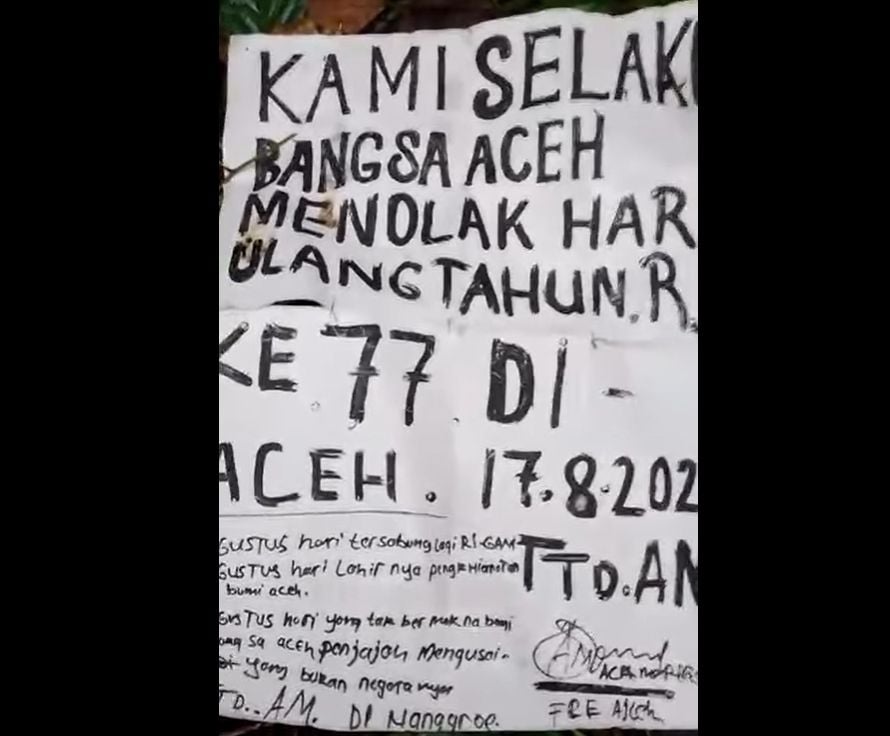 KAMI SELAK
BANGSA ACEH
MENOLAK HAR
ULANG TAHUN. R.
KE 77 DI -
ACEH. 17.8.202
GUSTUS hari tersabung lagi RI-GAM
GUSTUS hari Lahir nya
bumi aceh.
GUSTUS hari yang tak ber mak na bagi
ang sa aceh penjajah Mengusai-
di yang bukan negara nya
TD.. AM. DI Nanggroe.
TTD. AM
FRE Aceh